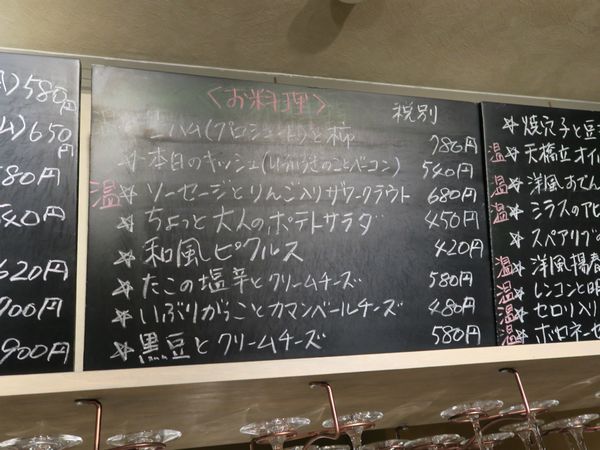 A)580円
ム)650円
580円
540円
620円
900円
900円
〈お料理〉 税別
☆生ハム(プロシュート)と柿 780円
☆本日のキッシュ(とベーコン) 540円
温☆ソーセージとりんご入りザワークラウト 680円
☆ちょっと大人のポテトサラダ 450円
☆和風ピクルス 420円
☆たこの塩辛とクリームチーズ 580円
☆いぶりがっことカマンベールチーズ 480円
☆黒豆とクリームチーズ 580円
☆焼穴子と
温☆天橋立オイル
☆洋風おでん
温☆シラスのアヒ
☆スペアリブの
温☆洋風揚春
温☆レンコンと明
温☆セロリ入り
温☆ボロネーゼ